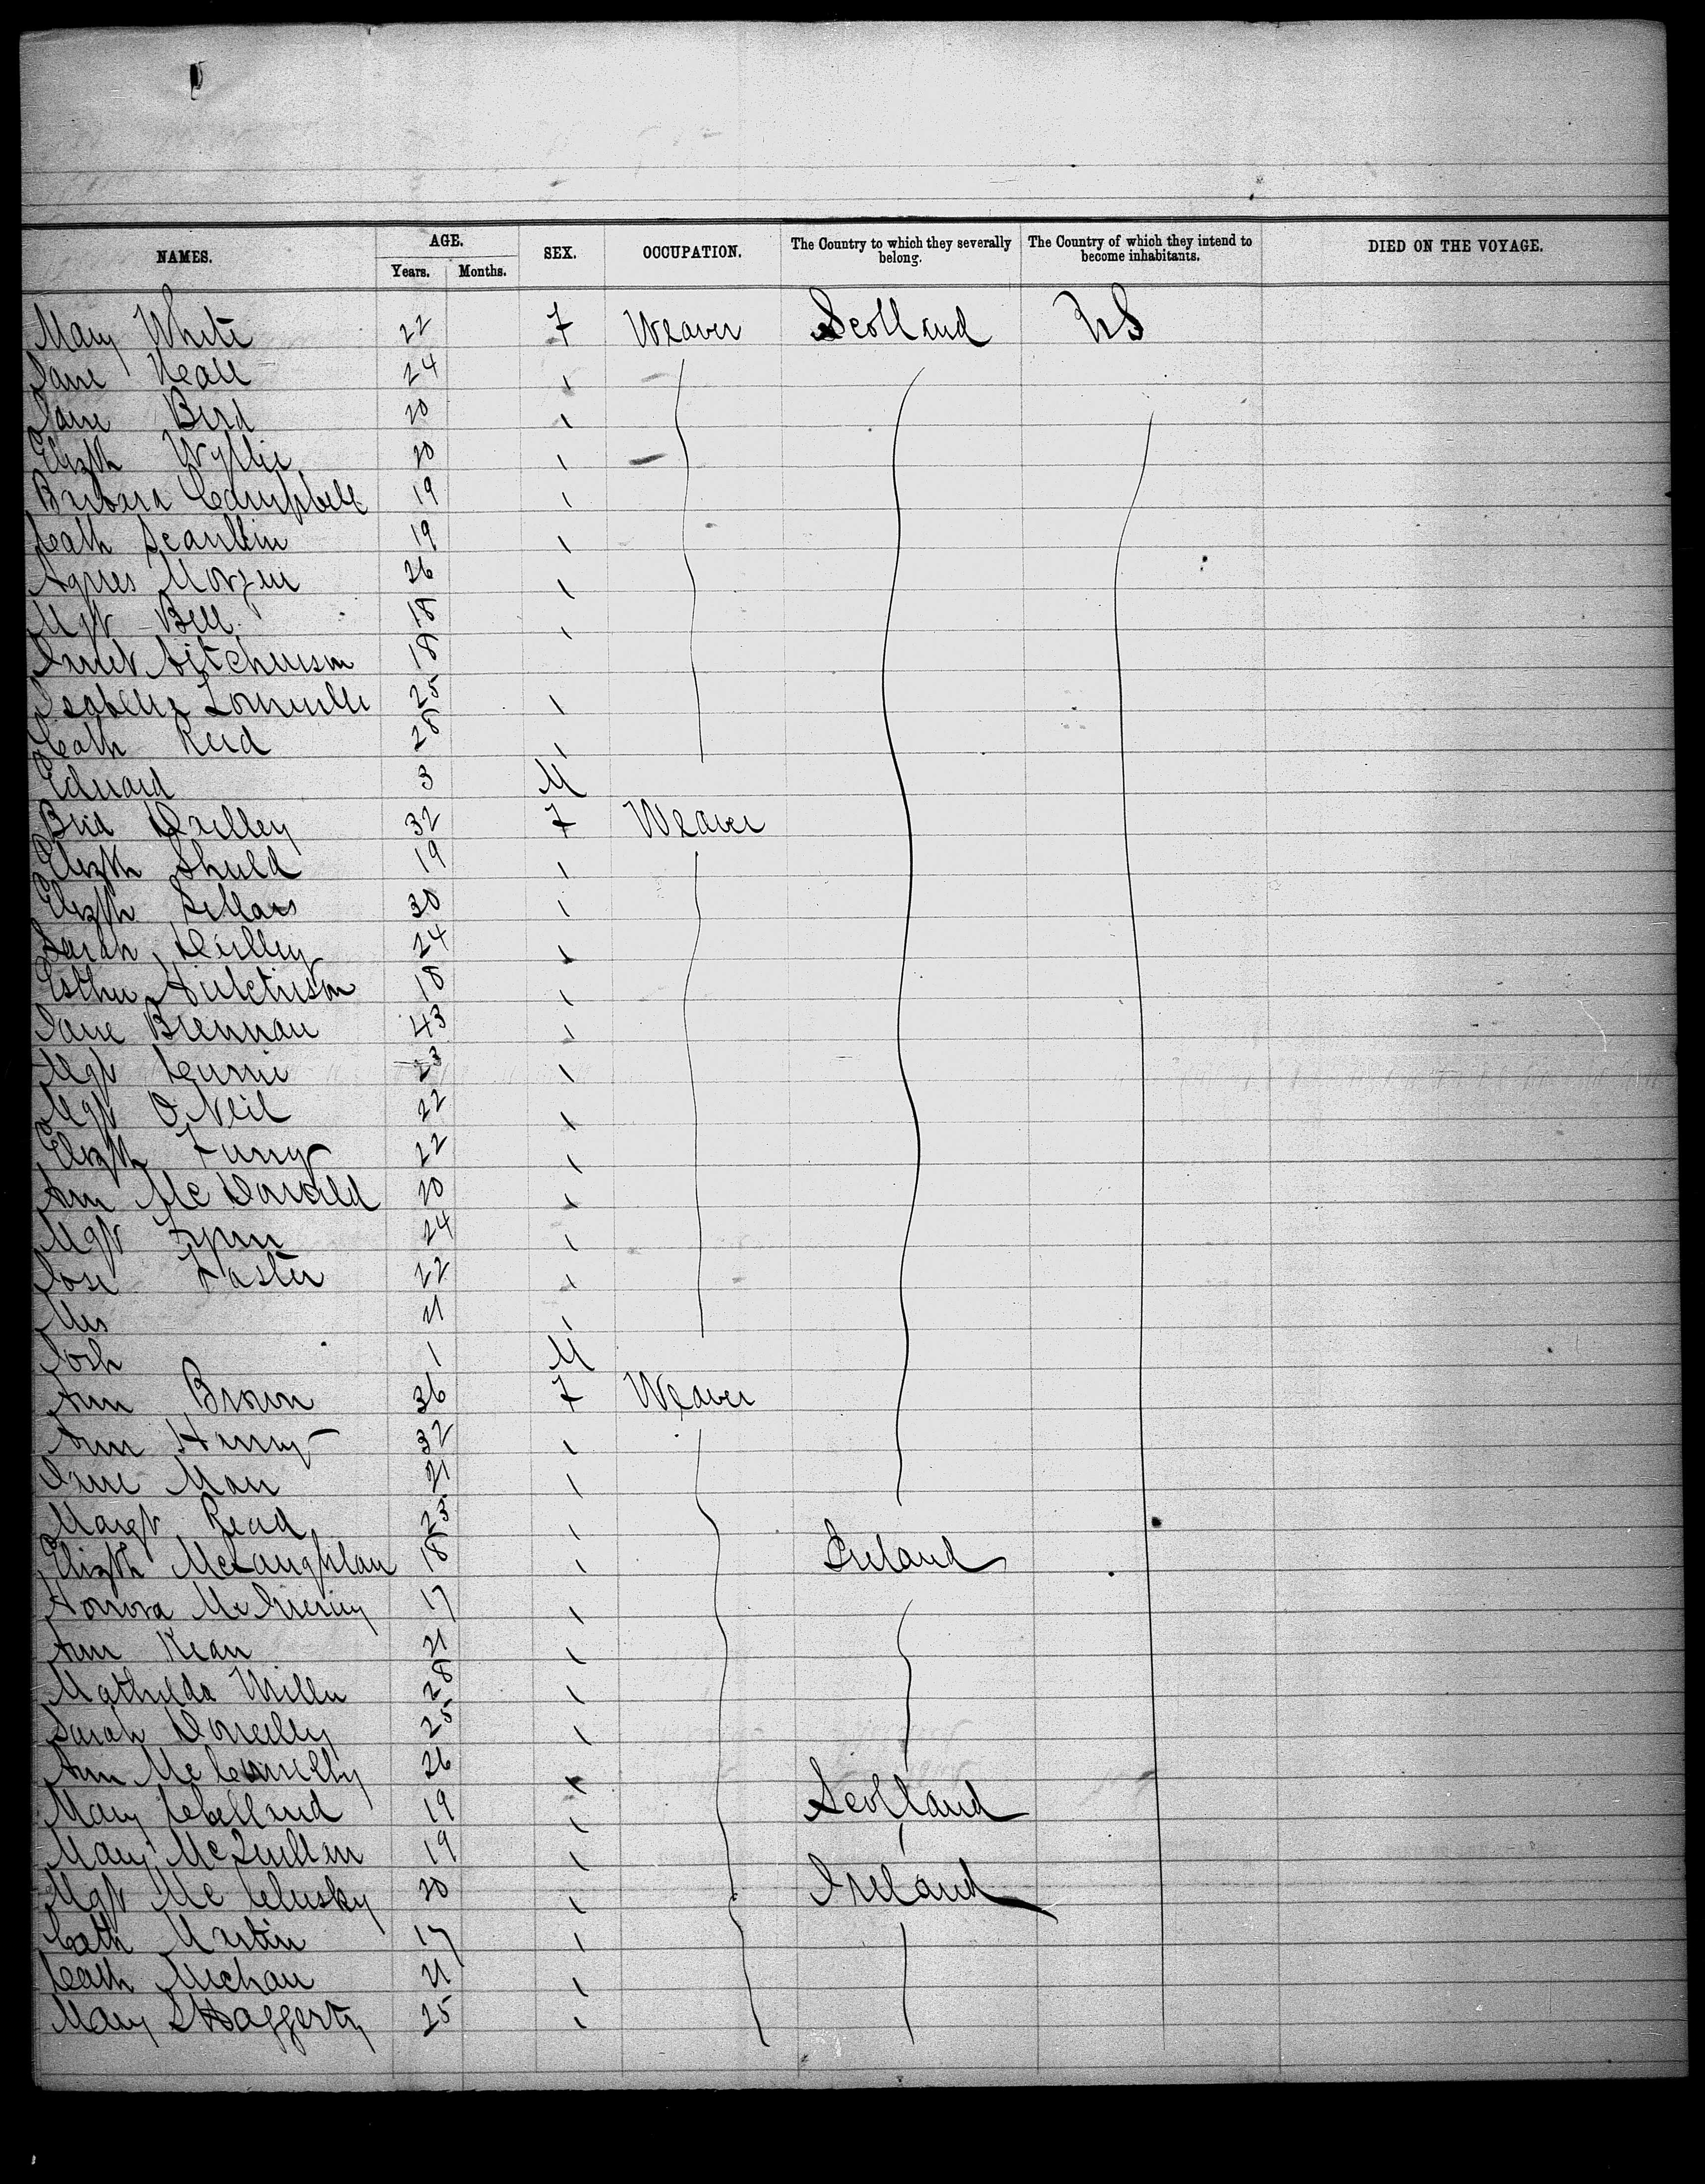 NAMES. AGE. SEX. OCCUPATION. The Country to which they severally belong. The Country of which they intend to become inhabitants. DIED ON THE VOYAGE.
Years. Months.
Mary White 22 F Weaver Scotland US
Jane Neall 24
Jane Bird 20
Elizth Wyllie 20
Barbara Campbell 19
Cath Scanllin 19
Agnes 26
Mgt Bell 18
Janet Aitchinson 18
Isabella 25
Cath Reid 28
Edward 3 M
Brid 32 F Weaver
Elizth Shuld 19
Elizth Sellars 30
Sarah 24
Esther Hutchison 18
Jane Brennan 43
Mgt Currie 23
Mgt O Neil 22
Elizth 22
Ann Mc Donald 20
Mgt 24
22
21
Josh 1 M
Ann Brown 36 F Weaver
Ann Henry 32
Jane 21
Margt Read 23
Elizth McLaughlan 18 Ireland
Honora 17
Ann Kean 21
Mathilda Miller 28
Sarah Donelly 25
Ann Mc Connelly 26
Mary Clelland 19 Scotland
Mary McQuillan 19
Mgt Mc Clusky 20 Ireland
Cath Martin 17
Cath Mechan 21
Mary O'Haggerty 25